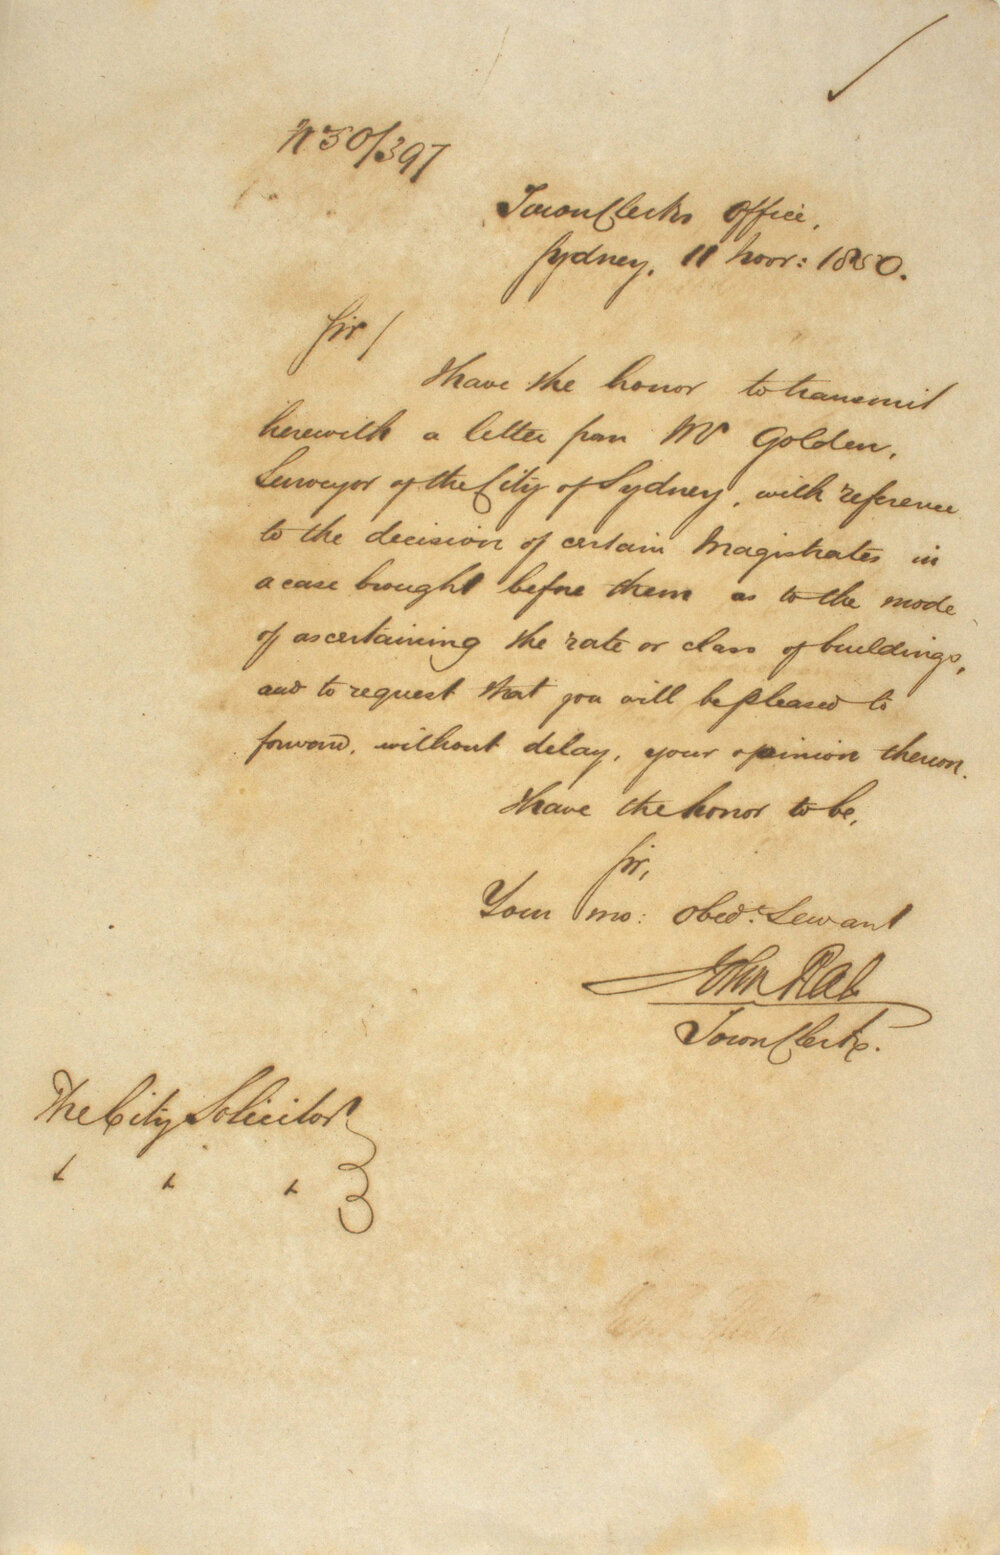 No 50/397
Town Clerks Office,
Sydney, 11 Novr: 1850.
Sir/
I have the honor to transmit
herewith a letter from Mr Golden,
Surveyor of the City of Sydney, with reference
to the decision of certain Magistrates in
a case brought before them as to the mode
of ascertaining the rate or class of buildings,
and to request that you will be pleased to
forward, without delay, your opinion thereon.
I have the honor to be,
Sir,
Your mo: obedt. Servant
John Rae
Town Clerk.
The City Solicitor